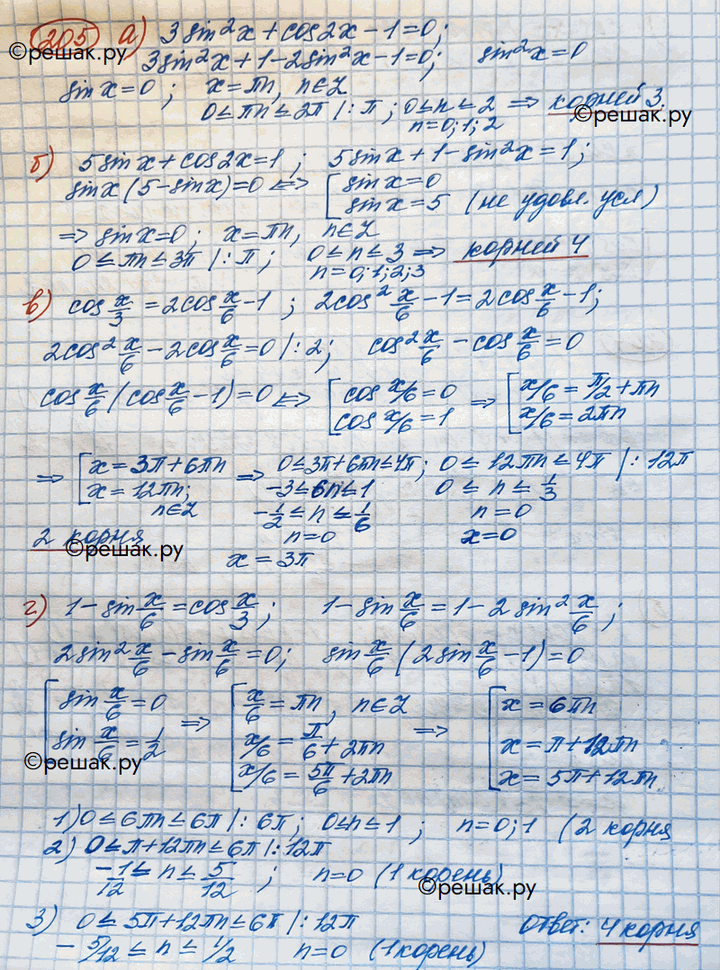 205 а) 3sin²x + cos2x - 1 = 0;
©решак.ру
3sin²x + 1 - 2sin²x - 1 = 0; sin²x = 0
sinx = 0; x = πn, n∈Z
0 ≤ πn ≤ 2π |:π; 0 ≤ n ≤ 2 ⇒ корней 3.
n = 0; 1; 2
©решак.ру
б) 5sinx + cos2x = 1; 5sinx + 1 - sin²x = 1;
sinx(5 - sinx) = 0 ⇔ [ sinx = 0
sinx = 5 (не удовл. усл)
⇒ sinx = 0; x = πn, n∈Z
0 ≤ πn ≤ 3π |:π; 0 ≤ n ≤ 3 ⇒ корней 4
n = 0; 1; 2; 3
в) cos x/3 = 2cos x/6 - 1; 2cos² x/6 - 1 = 2cos x/6 - 1;
2cos² x/6 - 2cos x/6 = 0 |:2; cos² x/6 - cos x/6 = 0
cos x/6 (cos x/6 - 1) = 0 ⇔ [ cos x/6 = 0 ⇒ [ x/6 = π/2 + πn
cos x/6 = 1 x/6 = 2πn
⇒ [ x = 3π + 6πn ⇒ 0 ≤ 3π + 6πn ≤ 4π; 0 ≤ 12πn ≤ 4π |:12π
x = 12πn; -3 ≤ 6n ≤ 1 0 ≤ n ≤ 1/3
n∈Z -1/2 ≤ n ≤ 1/6 n = 0
2 корня n = 0 x = 0
©решак.ру
x = 3π
г) 1 - sin x/6 = cos x/3; 1 - sin x/6 = 1 - 2sin² x/6;
2sin² x/6 - sin x/6 = 0; sin x/6 (2sin x/6 - 1) = 0
[ sin x/6 = 0 ⇒ [ x/6 = πn, n∈Z ⇒ [ x = 6πn
sin x/6 = 1/2 x/6 = π/6 + 2πn x = π + 12πn
x/6 = 5π/6 + 2πn x = 5π + 12πn
©решак.ру
1) 0 ≤ 6πn ≤ 6π |:6π; 0 ≤ n ≤ 1; n = 0; 1 (2 корня
2) 0 ≤ π + 12πn ≤ 6π |:12π
-1/12 ≤ n ≤ 5/12; n = 0 (1 корень)
©решак.ру
3) 0 ≤ 5π + 12πn ≤ 6π |:12π Ответ: 4 корня
-5/12 ≤ n ≤ 1/2 n = 0 (1 корень)